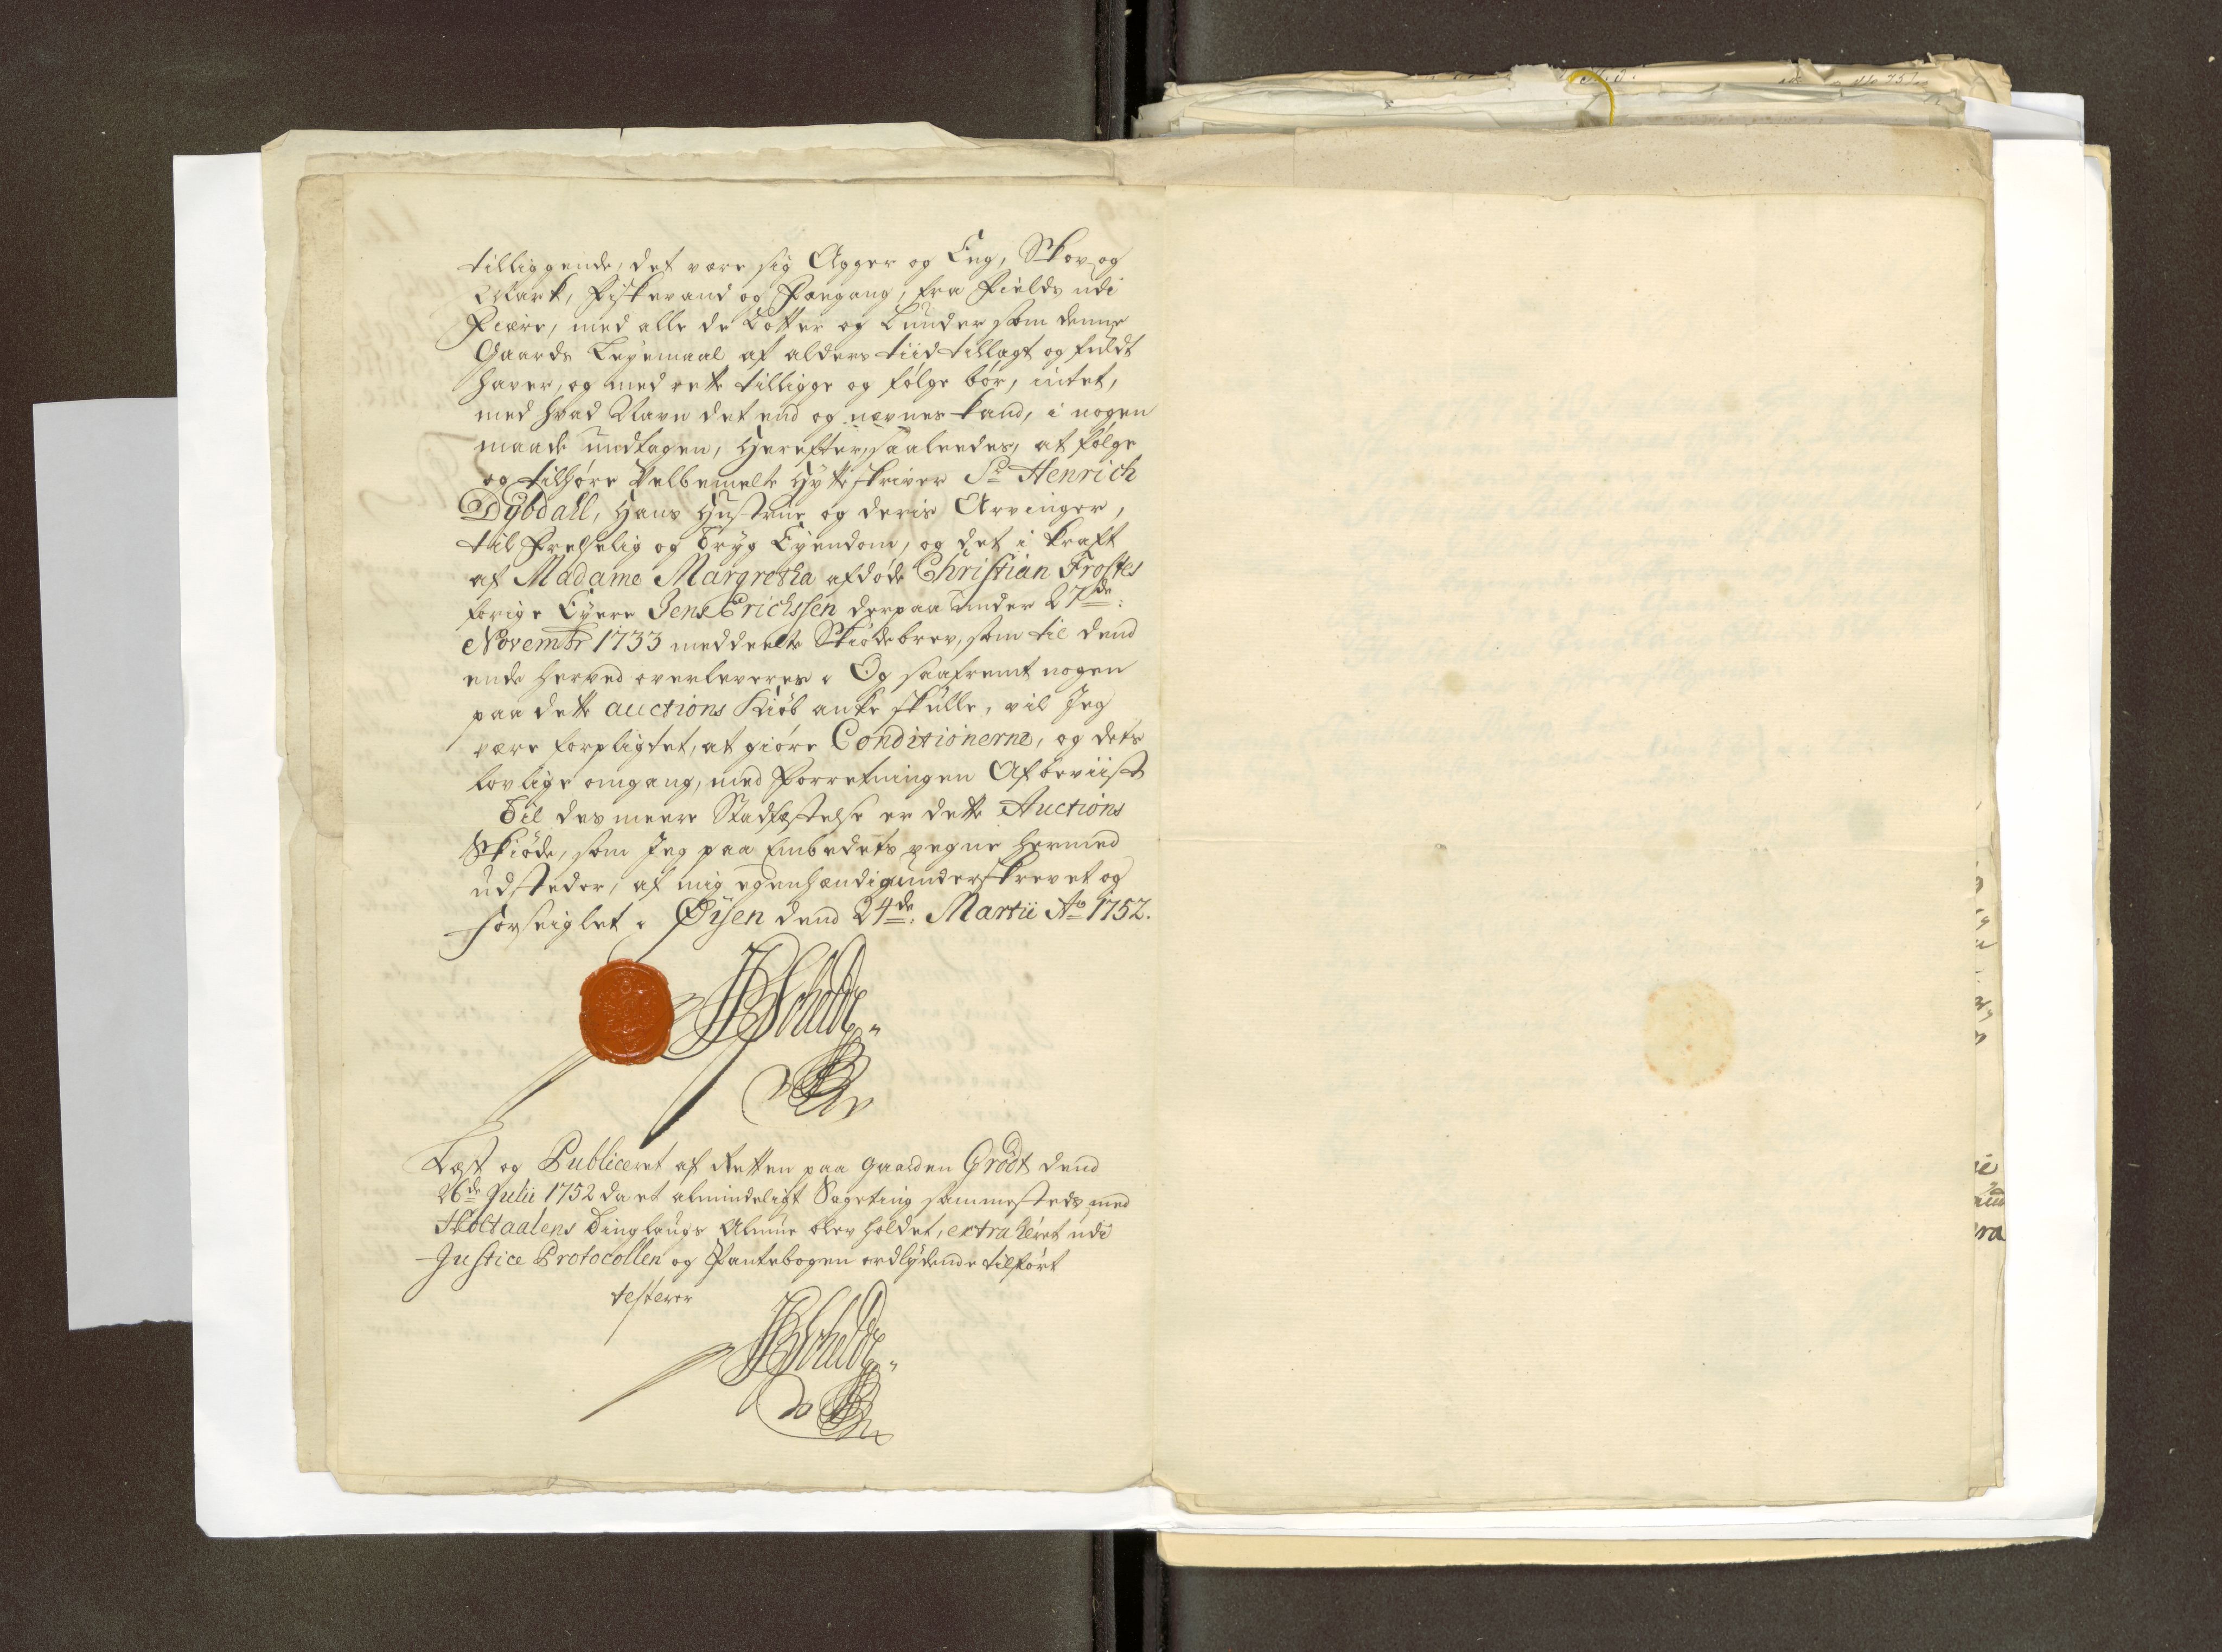 tilliggende, det være sig Agger og Eng, Skov og
Mark, Fiskevand og Fægang, fra Fields udi
Fiære, med alle de Lotter og Lunder som denne
Gaards Leyemaal af alders tiid tillagt og fuldt
haver, og med rette tilligge og følge bør, intet,
med hvad Navn det end og nævnes kand, i nogen
maade undtagen, Herefter, saaleedes, at følge
og tilhøre Velbemelte Hytteskriver Sr. Henrich
Dybdall, Hans Hustrue og deris Arvinger,
til Frelselig og Tryg Eyendom, og det i kraft
af Madame Margretha afdøde Christian Frostes
forige Eyere Jens Erichssen derpaa under 27de:
Novembr 1733 meddeelte Skiødebrev, som til dend
ende herved overleveres. Og saafremt nogen
paa dette auctions Kiøb anke skulle, vil Jeg
være forpligtet, at giøre Conditionerne, og dets
lovlige omgang, med Forretningen Afbeviist
Til des meere Stadfæstelse er dette Auctions
Skiøde, som Jeg paa Embedets vegne hermed
udsteder, af mig egenhændig underskrevet og
forseiglet. Øisen dend 24de: Martii Ao 1752.
JBScheldr
Læst og Publiceret af Retten paa gaarden Grødt dend
26de Julii 1752 da et almindeligt Sageting sammesteds med
Holtaalens Tinglaugs Almue blev holdet, extraheret udi
Justice Protocollen og Pantebogen ordlydende tilført
testerer
JBScheldr